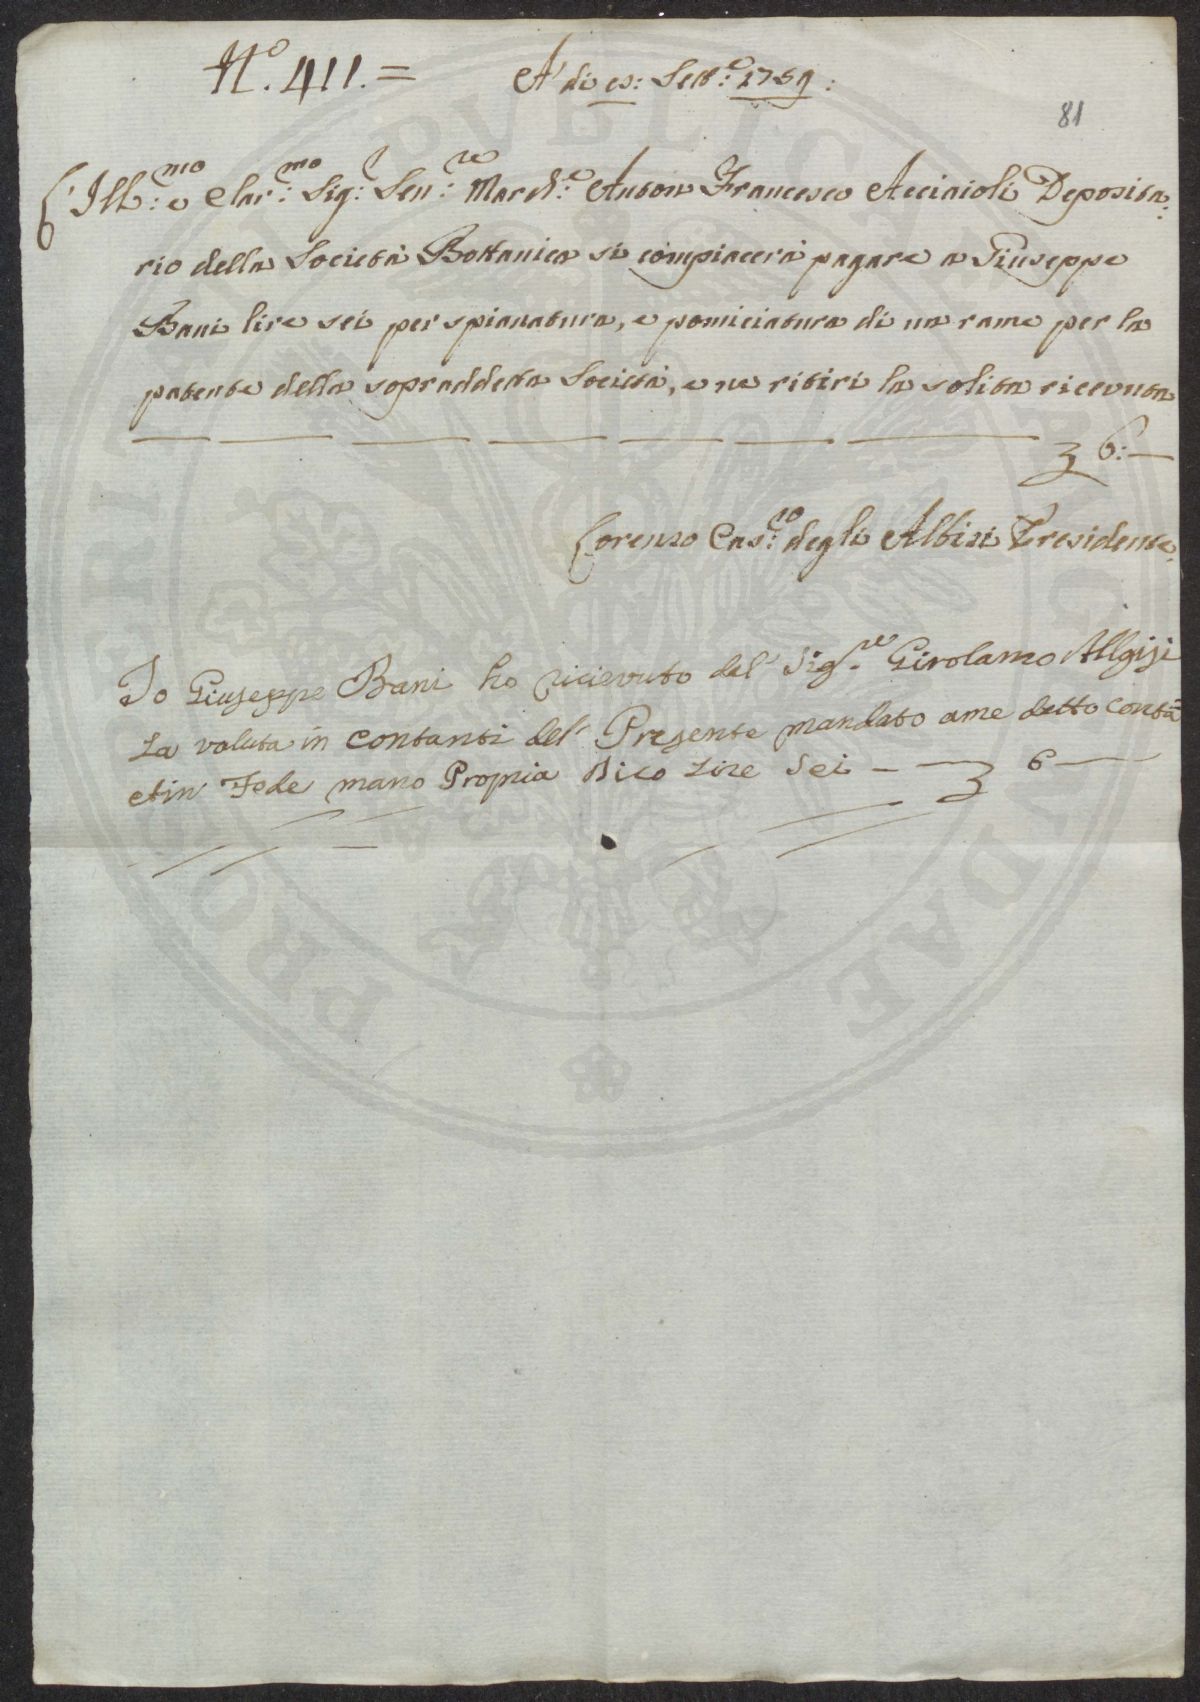 N.º 411. =
A' di Sett.e 1769:
81
L'Ill:mo e Clar:mo Sig: Sen:re March:e Anton Francesco Acciaioli Deposita:
rio della Società Bottanica si compiacerà pagare a Giuseppe
Bani lire sei per spianatura, e pomiciatura di un rame per la
patente della sopraddetta Società, e ne ritiri la solita ricevuta
6:—
Lorenzo degli Albizi Presidente
Io Giuseppe Bani ho ricievuto dal' Sig.re Girolamo Allgizi
La valuta in contanti del' Presente mandato ame detto contā
etin' Fede mano Propria Dico Lire Sei — 6 —
PROSPERITATI PVBLICAE AVGENDAE